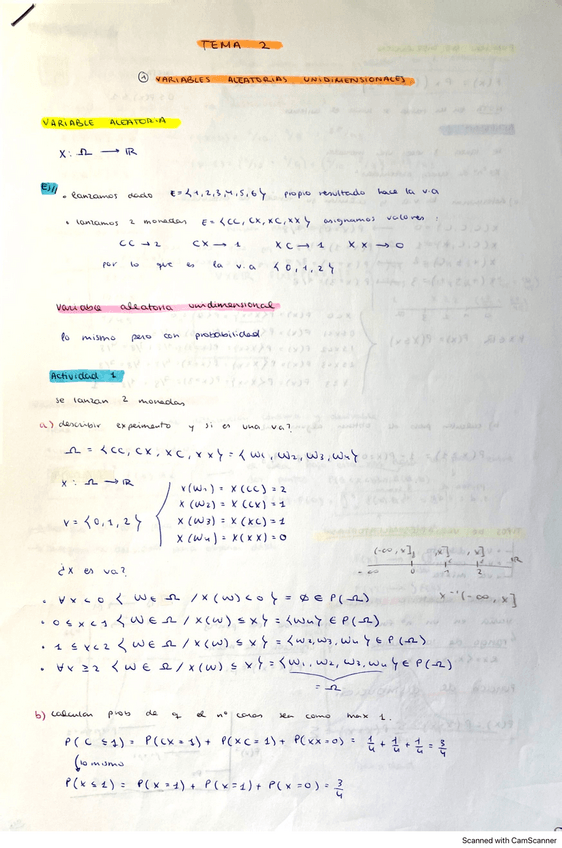 TEMA 2
① VARIABLES ALEATORIAS UNIDIMENSIONALES
VARIABLE ALEATORIA
X: Ω → ℝ
Ej//
• lanzamos dado E = {1,2,3,4,5,6} propio resultado hace la v.a
• lanzamos 2 monedas E = {CC, CX, XC, XX} asignamos valores:
CC → 2 CX → 1 XC → 1 XX → 0
por lo que es la v.a {0,1,2}
Variable aleatoria unidimensional
lo mismo pero con probabilidad
Actividad 1
se lanzan 2 monedas
a) describir experimento y si es una va?
Ω = {CC, CX, XC, XX} = {W1, W2, W3, W4}
X: Ω → ℝ
X(W1) = X(CC) = 2
X(W2) = X(CX) = 1
V = {0,1,2}
X(W3) = X(XC) = 1
X(W4) = X(XX) = 0
(-∞, x] , x] , x]
ℝ
-∞ 0 1 2
¿X es va?
X⁻¹(-∞, x]
• ∀x < 0 {W ∈ Ω / X(W) < 0} = ∅ ∈ P(Ω)
• 0 ≤ x < 1 {W ∈ Ω / X(W) ≤ x} = {W4} ∈ P(Ω)
• 1 ≤ x < 2 {W ∈ Ω / X(W) ≤ x} = {W2, W3, W4} ∈ P(Ω)
• ∀x ≥ 2 {W ∈ Ω / X(W) ≤ x} = {W1, W2, W3, W4} ∈ P(Ω)
= Ω
b) calcular prob de q el nº caras sea como max 1.
P(C ≤ 1) = P(CX = 1) + P(XC = 1) + P(XX = 0) = 1/4 + 1/4 + 1/4 = 3/4
lo mismo
P(X ≤ 1) = P(X = 1) + P(X = 1) + P(X = 0) = 3/4
Scanned with CamScanner